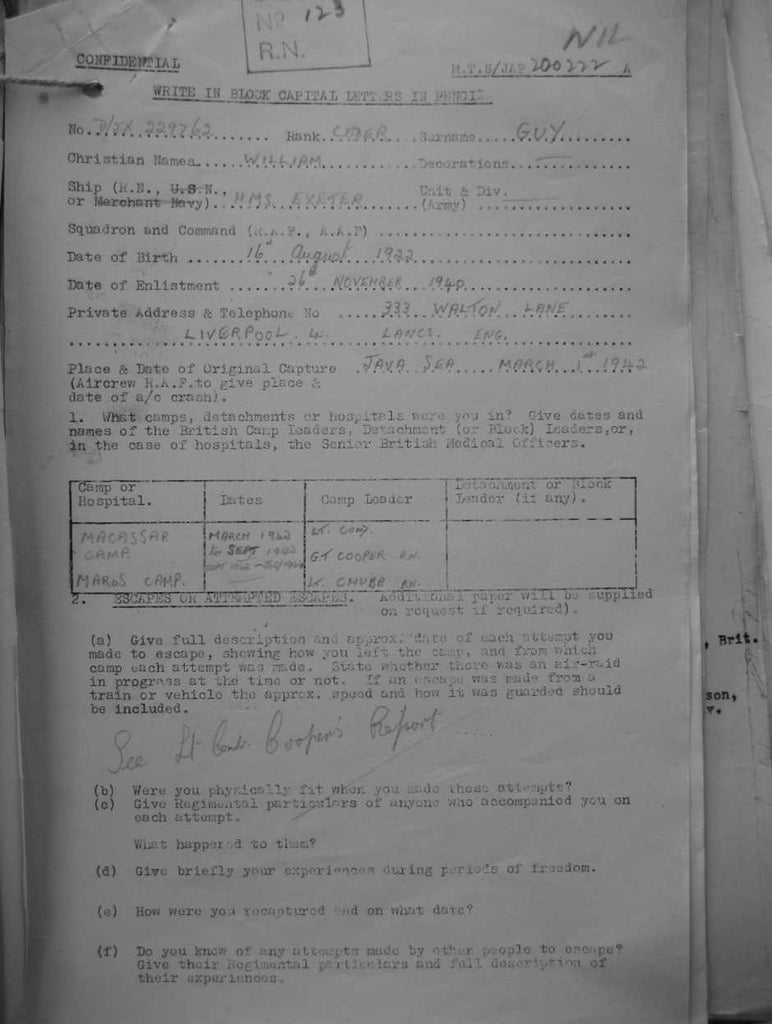 No 123
R.N.
NIL
CONFIDENTIAL
M.I.9/JAP 200222 A
WRITE IN BLOCK CAPITAL LETTERS IN PENCIL
No. D/JX 229762 Rank. CODER Surname. GUY
Christian Names. WILLIAM Decorations. —
Ship (R.N., U.S.N., Unit & Div. —
or Merchant Navy). HMS. EXETER (Army)
Squadron and Command (R.A.F., A.A.F)
Date of Birth 16th August 1922
Date of Enlistment 26th NOVEMBER 1940
Private Address & Telephone No 333 WALTON LANE
LIVERPOOL 4. LANCS. ENG.
Place & Date of Original Capture JAVA SEA MARCH 1st 1942
(Aircrew R.A.F. to give place &
date of a/c crash).
1. What camps, detachments or hospitals were you in? Give dates and
names of the British Camp Leaders, Detachment (or Block) Leaders, or,
in the case of hospitals, the Senior British Medical Officers.
Camp or Detachment or Block
Hospital. Dates Camp Leader Leader (if any).
MACASSAR MARCH 1942 Lt. COM.
CAMP. to SEPT 1942 G.T COOPER RN.
MAROS CAMP. — Lt. CHUBB RN.
2. ESCAPES OR ATTEMPTED ESCAPES. Additional paper will be supplied
on request if required).
(a) Give full description and approx. date of each attempt you
made to escape, showing how you left the camp, and from which
camp each attempt was made. State whether there was an air-raid
in progress at the time or not. If an escape was made from a
train or vehicle the approx. speed and how it was guarded should
be included.
See Lt Comdr. Cooper's Report
(b) Were you physically fit when you made these attempts?
(c) Give Regimental particulars of anyone who accompanied you on
each attempt.
What happened to them?
(d) Give briefly your experiences during periods of freedom.
(e) How were you recaptured and on what date?
(f) Do you know of any attempts made by other people to escape?
Give their Regimental particulars and full description of
their experiences.
, Brit.
son,
v.